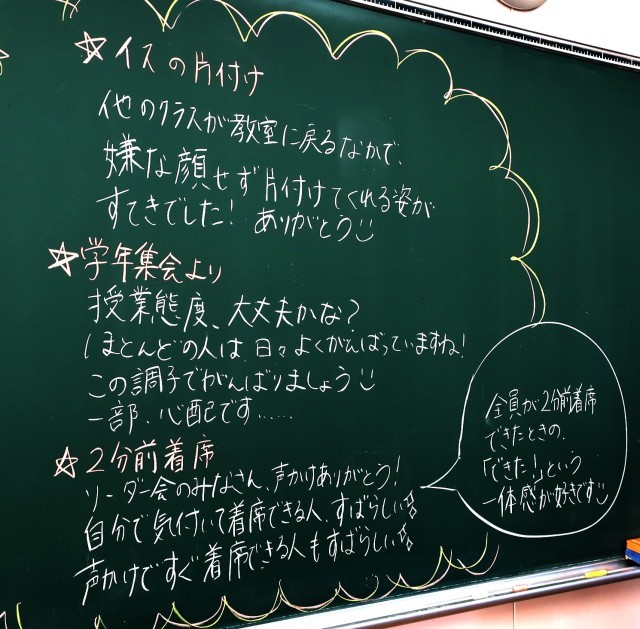 ☆イスの片付け
他のクラスが教室に戻るなかで、
嫌な顔せず片付けてくれる姿が
すてきでした！ ありがとう
☆学年集会より
授業態度、大丈夫かな？
ほとんどの人は日々よくがんばっていますね！
この調子でがんばりましょう
一部、心配です……
☆2分前着席
リーダー会のみなさん、声かけありがとう！
自分で気付いて着席できる人、すばらしい
声かけですぐ着席できる人もすばらしい
全員が2分前着席
できたときの、
「できた！」という
一体感が好きです